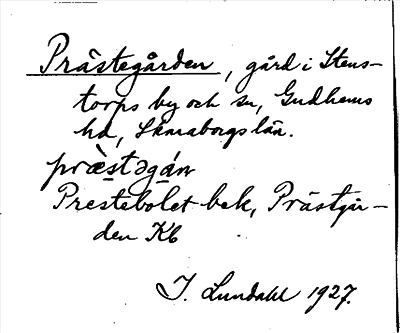 Prästegården, gård i Stens-
torps by och sn, Gudhems
hd, Skaraborgs län.
præ̀stəgán
Prestebolet bek, Prästgår-
den Kb
I. Lundahl 1927.